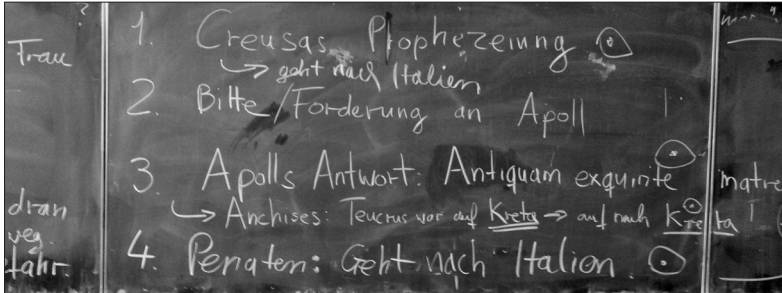 ?
Frau
dran
weg.
fahr.
1. Creusas Prophezeiung
↳ geht nach Italien
2. Bitte/Forderung an Apoll
3. Apolls Antwort: Antiquam exquirite
↳ Anchises: Teucrus vor auf Kreta → auf nach Kreta
4. Penaten: Geht nach Italien.
matre